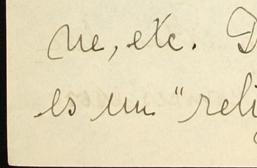 ne, etc. D
es un "reli